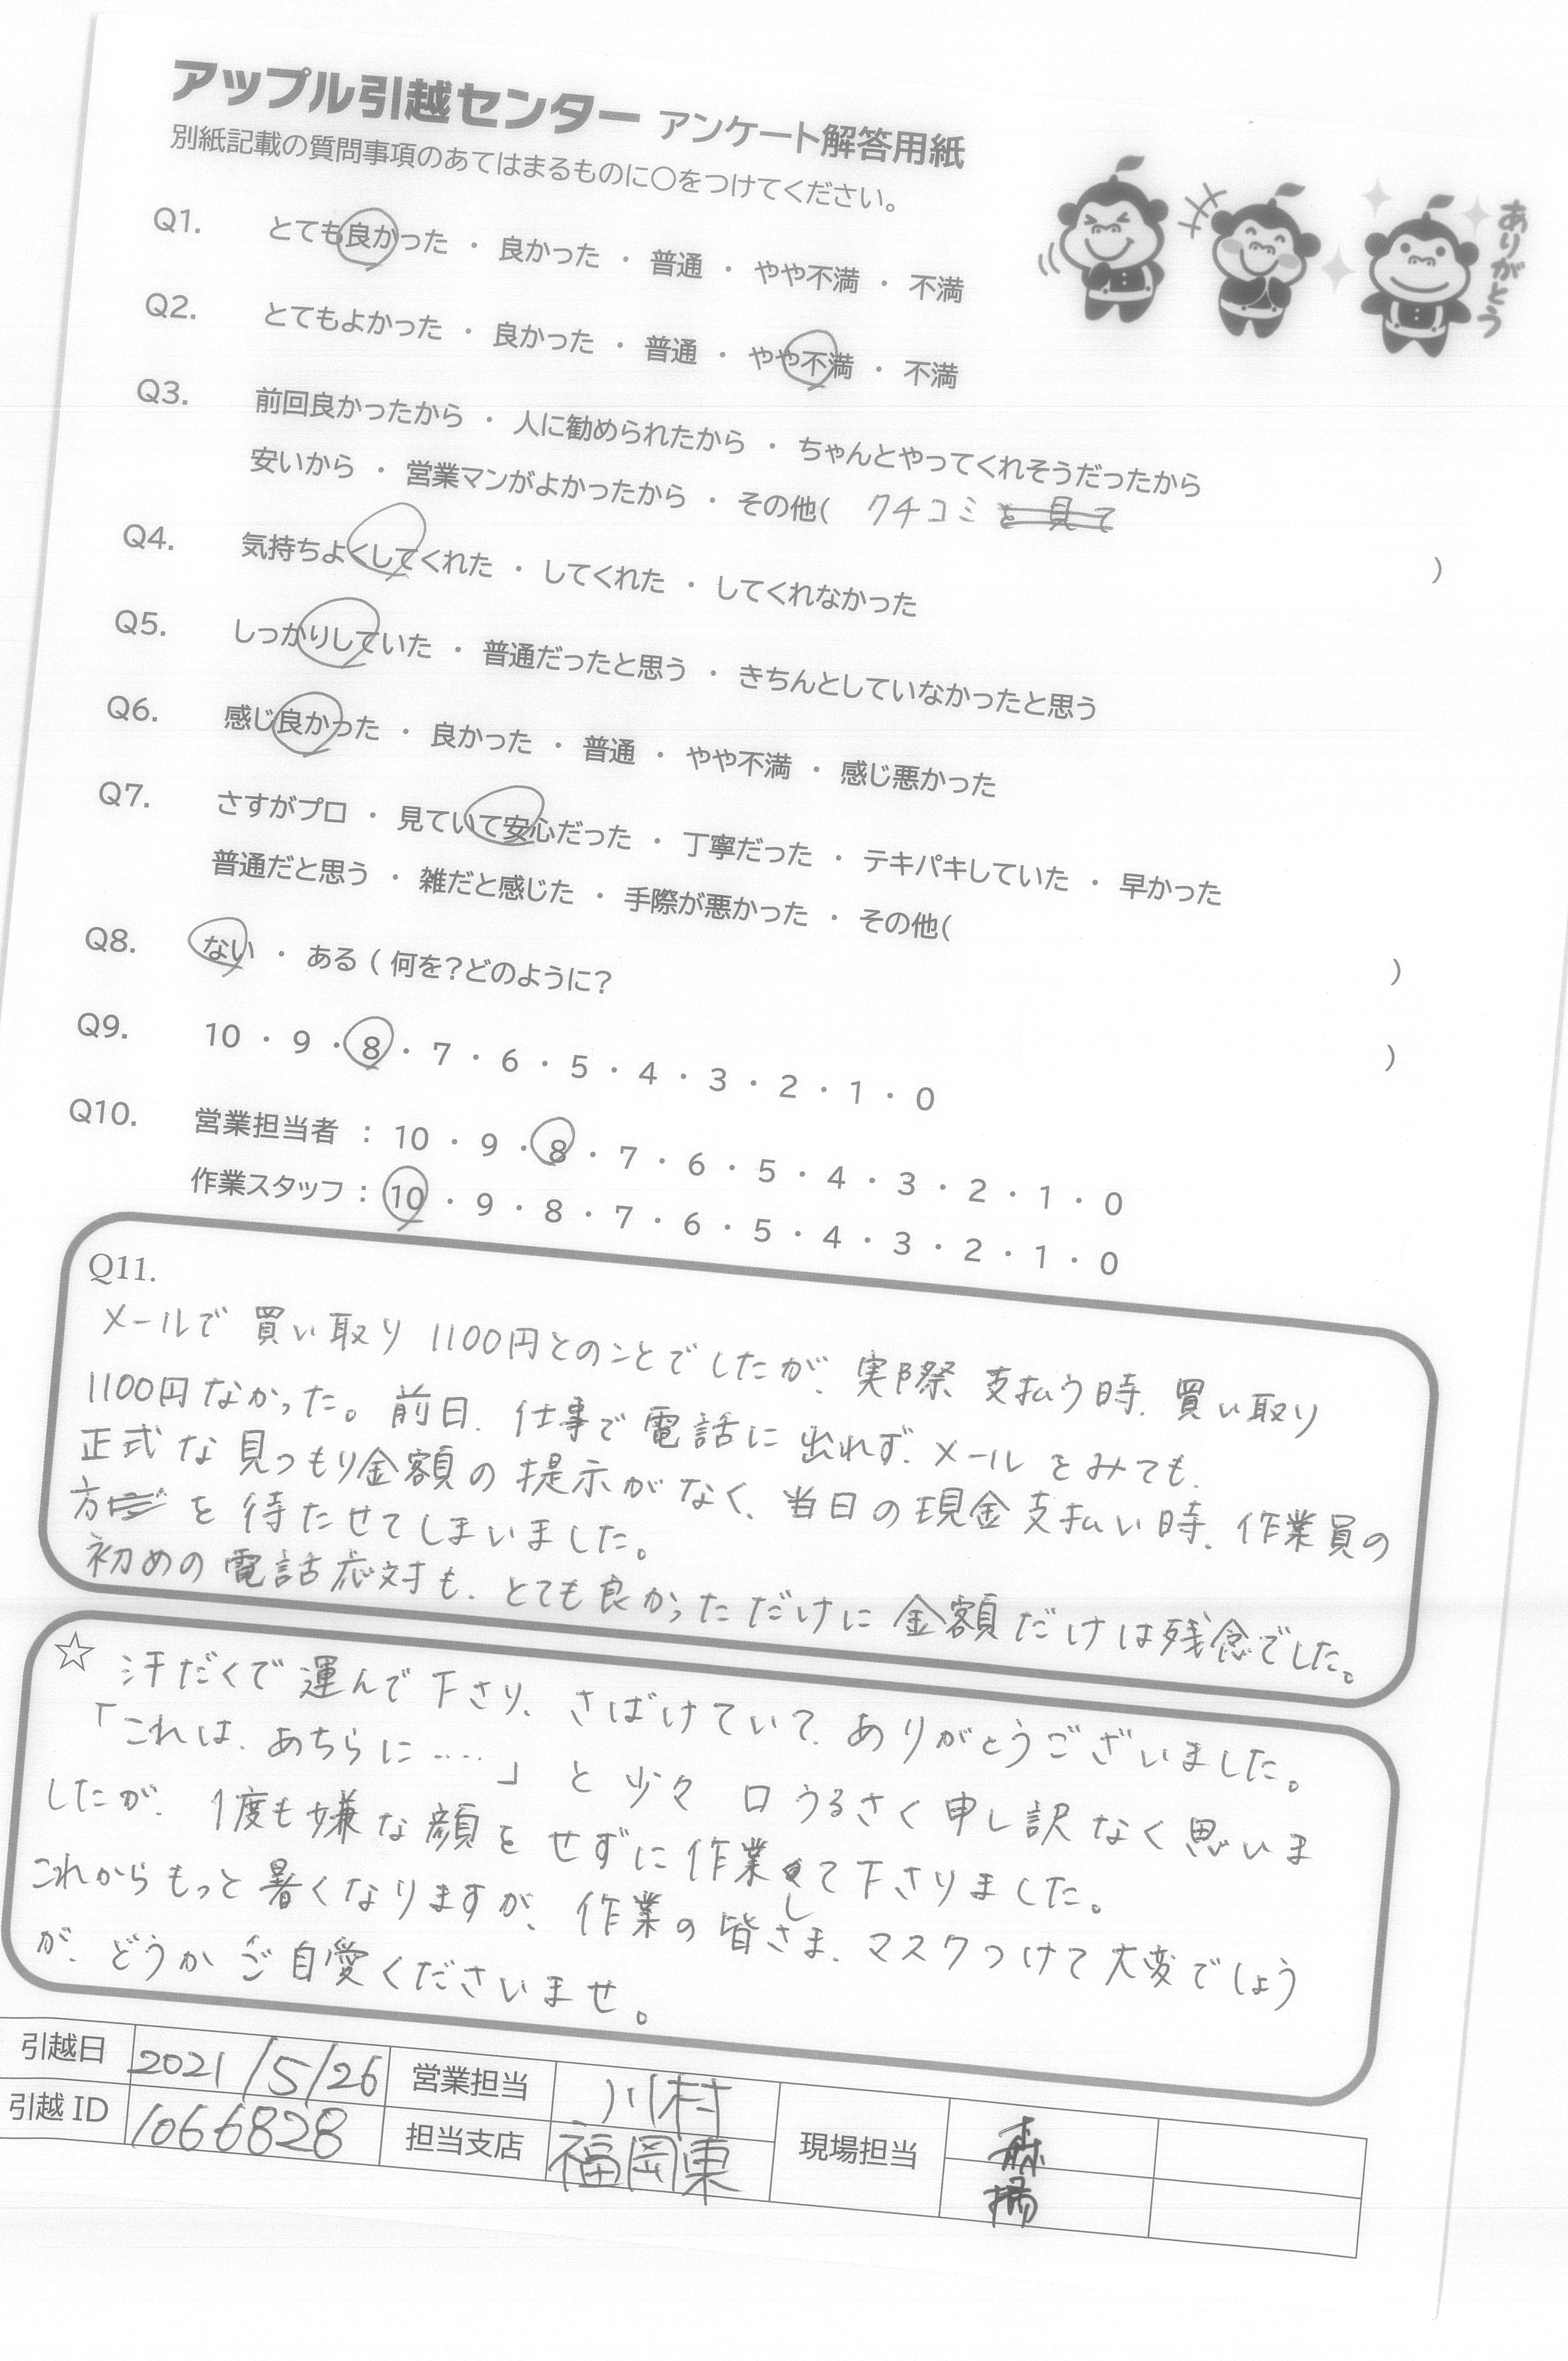 アップル引越センター アンケート解答用紙
別紙記載の質問事項のあてはまるものに○をつけてください。
ありがとう
Q1. とても良かった ・ 良かった ・ 普通 ・ やや不満 ・ 不満
Q2. とてもよかった ・ 良かった ・ 普通 ・ やや不満 ・ 不満
Q3. 前回良かったから ・ 人に勧められたから ・ ちゃんとやってくれそうだったから
安いから ・ 営業マンがよかったから ・ その他( クチコミを見て )
Q4. 気持ちよくしてくれた ・ してくれた ・ してくれなかった
Q5. しっかりしていた ・ 普通だったと思う ・ きちんとしていなかったと思う
Q6. 感じ良かった ・ 良かった ・ 普通 ・ やや不満 ・ 感じ悪かった
Q7. さすがプロ ・ 見ていて安心だった ・ 丁寧だった ・ テキパキしていた ・ 早かった
普通だと思う ・ 雑だと感じた ・ 手際が悪かった ・ その他( )
Q8. ない ・ ある ( 何を?どのように? )
Q9. 10 ・ 9 ・ 8 ・ 7 ・ 6 ・ 5 ・ 4 ・ 3 ・ 2 ・ 1 ・ 0
Q10. 営業担当者 : 10 ・ 9 ・ 8 ・ 7 ・ 6 ・ 5 ・ 4 ・ 3 ・ 2 ・ 1 ・ 0
作業スタッフ : 10 ・ 9 ・ 8 ・ 7 ・ 6 ・ 5 ・ 4 ・ 3 ・ 2 ・ 1 ・ 0
Q11.
メールで買い取り1100円とのことでしたが、実際支払う時、買い取り
1100円なかった。前日、仕事で電話に出れず、メールをみても、
正式な見つもり金額の提示がなく、当日の現金支払い時、作業員の
方を待たせてしまいました。
初めの電話応対も、とても良かっただけに金額だけは残念でした。
☆ 汗だくで運んで下さり、さばけていて、ありがとうございました。
「これは、あちらに……」と少々口うるさく申し訳なく思いま
したが、1度も嫌な顔をせずに作業して下さりました。
これからもっと暑くなりますが、作業の皆さま、マスクつけて大変でしょう
が、どうかご自愛くださいませ。
引越日 2021/5/26 営業担当 川村
引越ID 1066828 担当支店 福岡東 現場担当 森